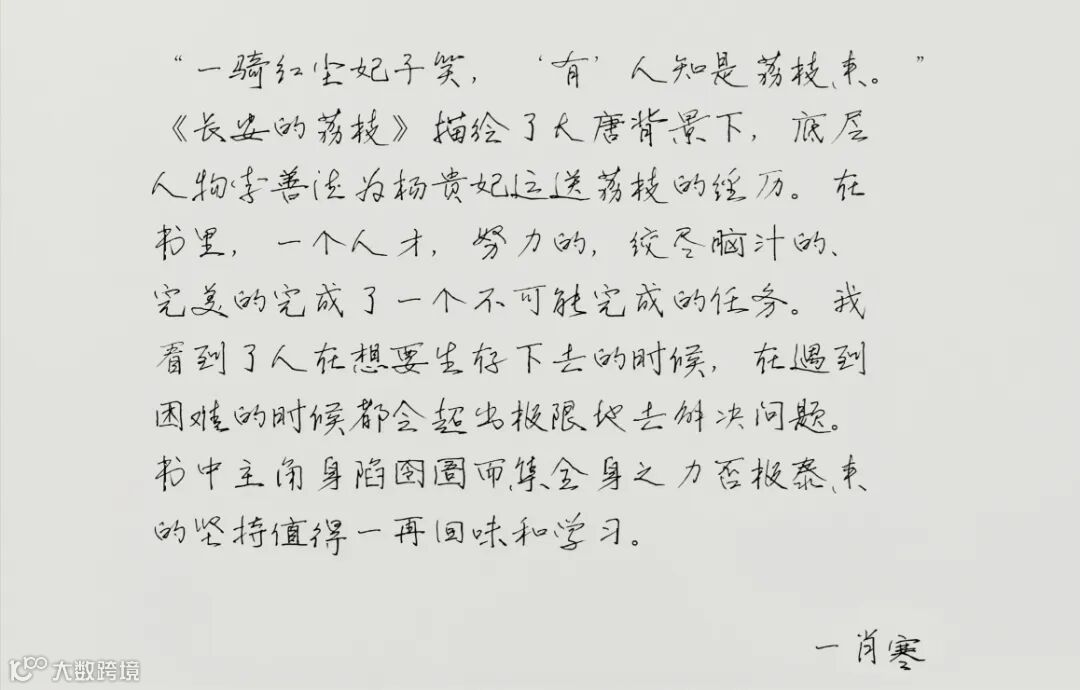 “一骑红尘妃子笑，‘有’人知是荔枝来。”
《长安的荔枝》描绘了大唐背景下，底层
人物李善德为杨贵妃运送荔枝的经历。在
书里，一个人才，努力的，绞尽脑汁的、
完美的完成了一个不可能完成的任务。我
看到了人在想要生存下去的时候，在遇到
困难的时候都会超出极限地去解决问题。
书中主角身陷囹圄而集全身之力否极泰来
的坚持值得一再回味和学习。
一肖寒
大数跨境